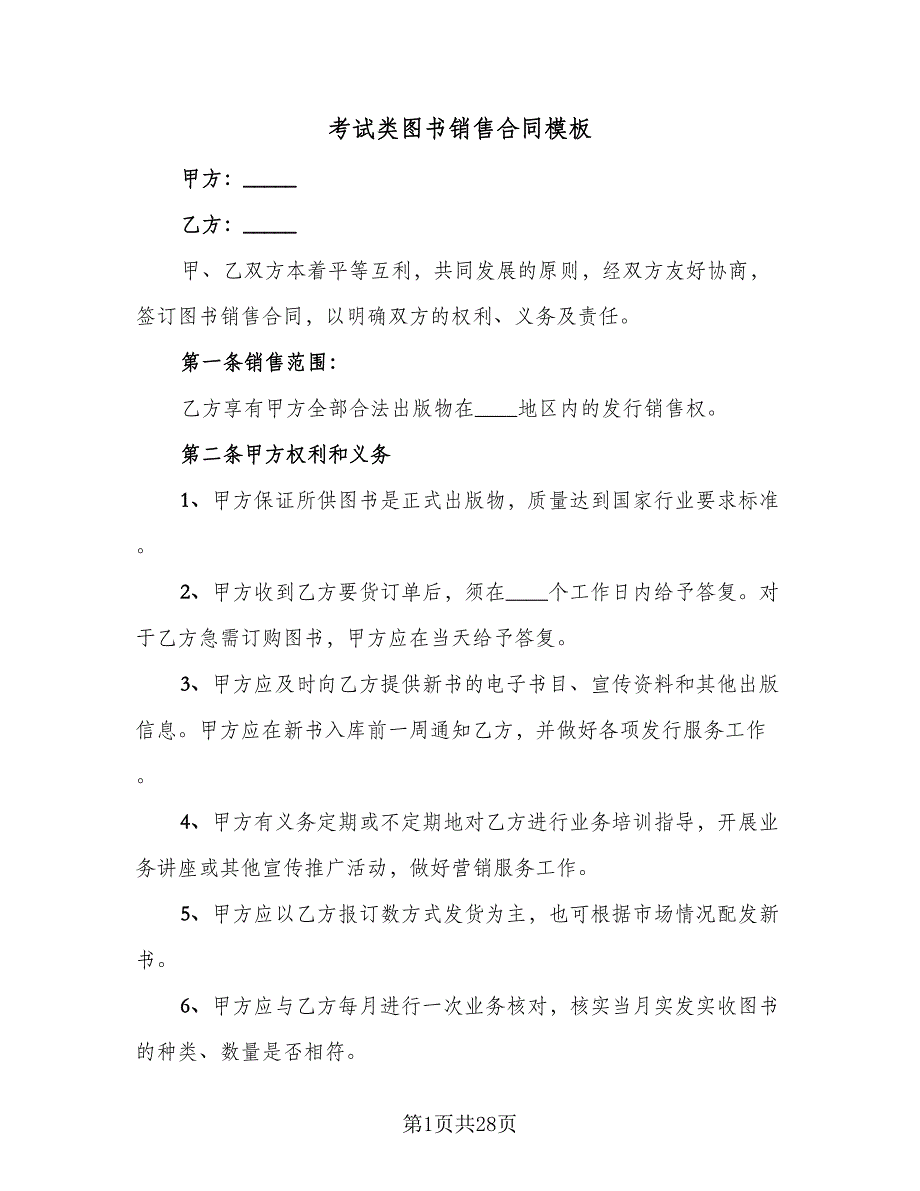 考试类图书销售合同模板
甲方：_____
乙方：_____
甲、乙双方本着平等互利，共同发展的原则，经双方友好协商，
签订图书销售合同，以明确双方的权利、义务及责任。
第一条销售范围：
乙方享有甲方全部合法出版物在____地区内的发行销售权。
第二条甲方权利和义务
1、甲方保证所供图书是正式出版物，质量达到国家行业要求标准
。
2、甲方收到乙方要货订单后，须在____个工作日内给予答复。对
于乙方急需订购图书，甲方应在当天给予答复。
3、甲方应及时向乙方提供新书的电子书目、宣传资料和其他出版
信息。甲方应在新书入库前一周通知乙方，并做好各项发行服务工作
。
4、甲方有义务定期或不定期地对乙方进行业务培训指导，开展业
务讲座或其他宣传推广活动，做好营销服务工作。
5、甲方应以乙方报订数方式发货为主，也可根据市场情况配发新
书。
6、甲方应与乙方每月进行一次业务核对，核实当月实发实收图书
的种类、数量是否相符。
第1页共28页